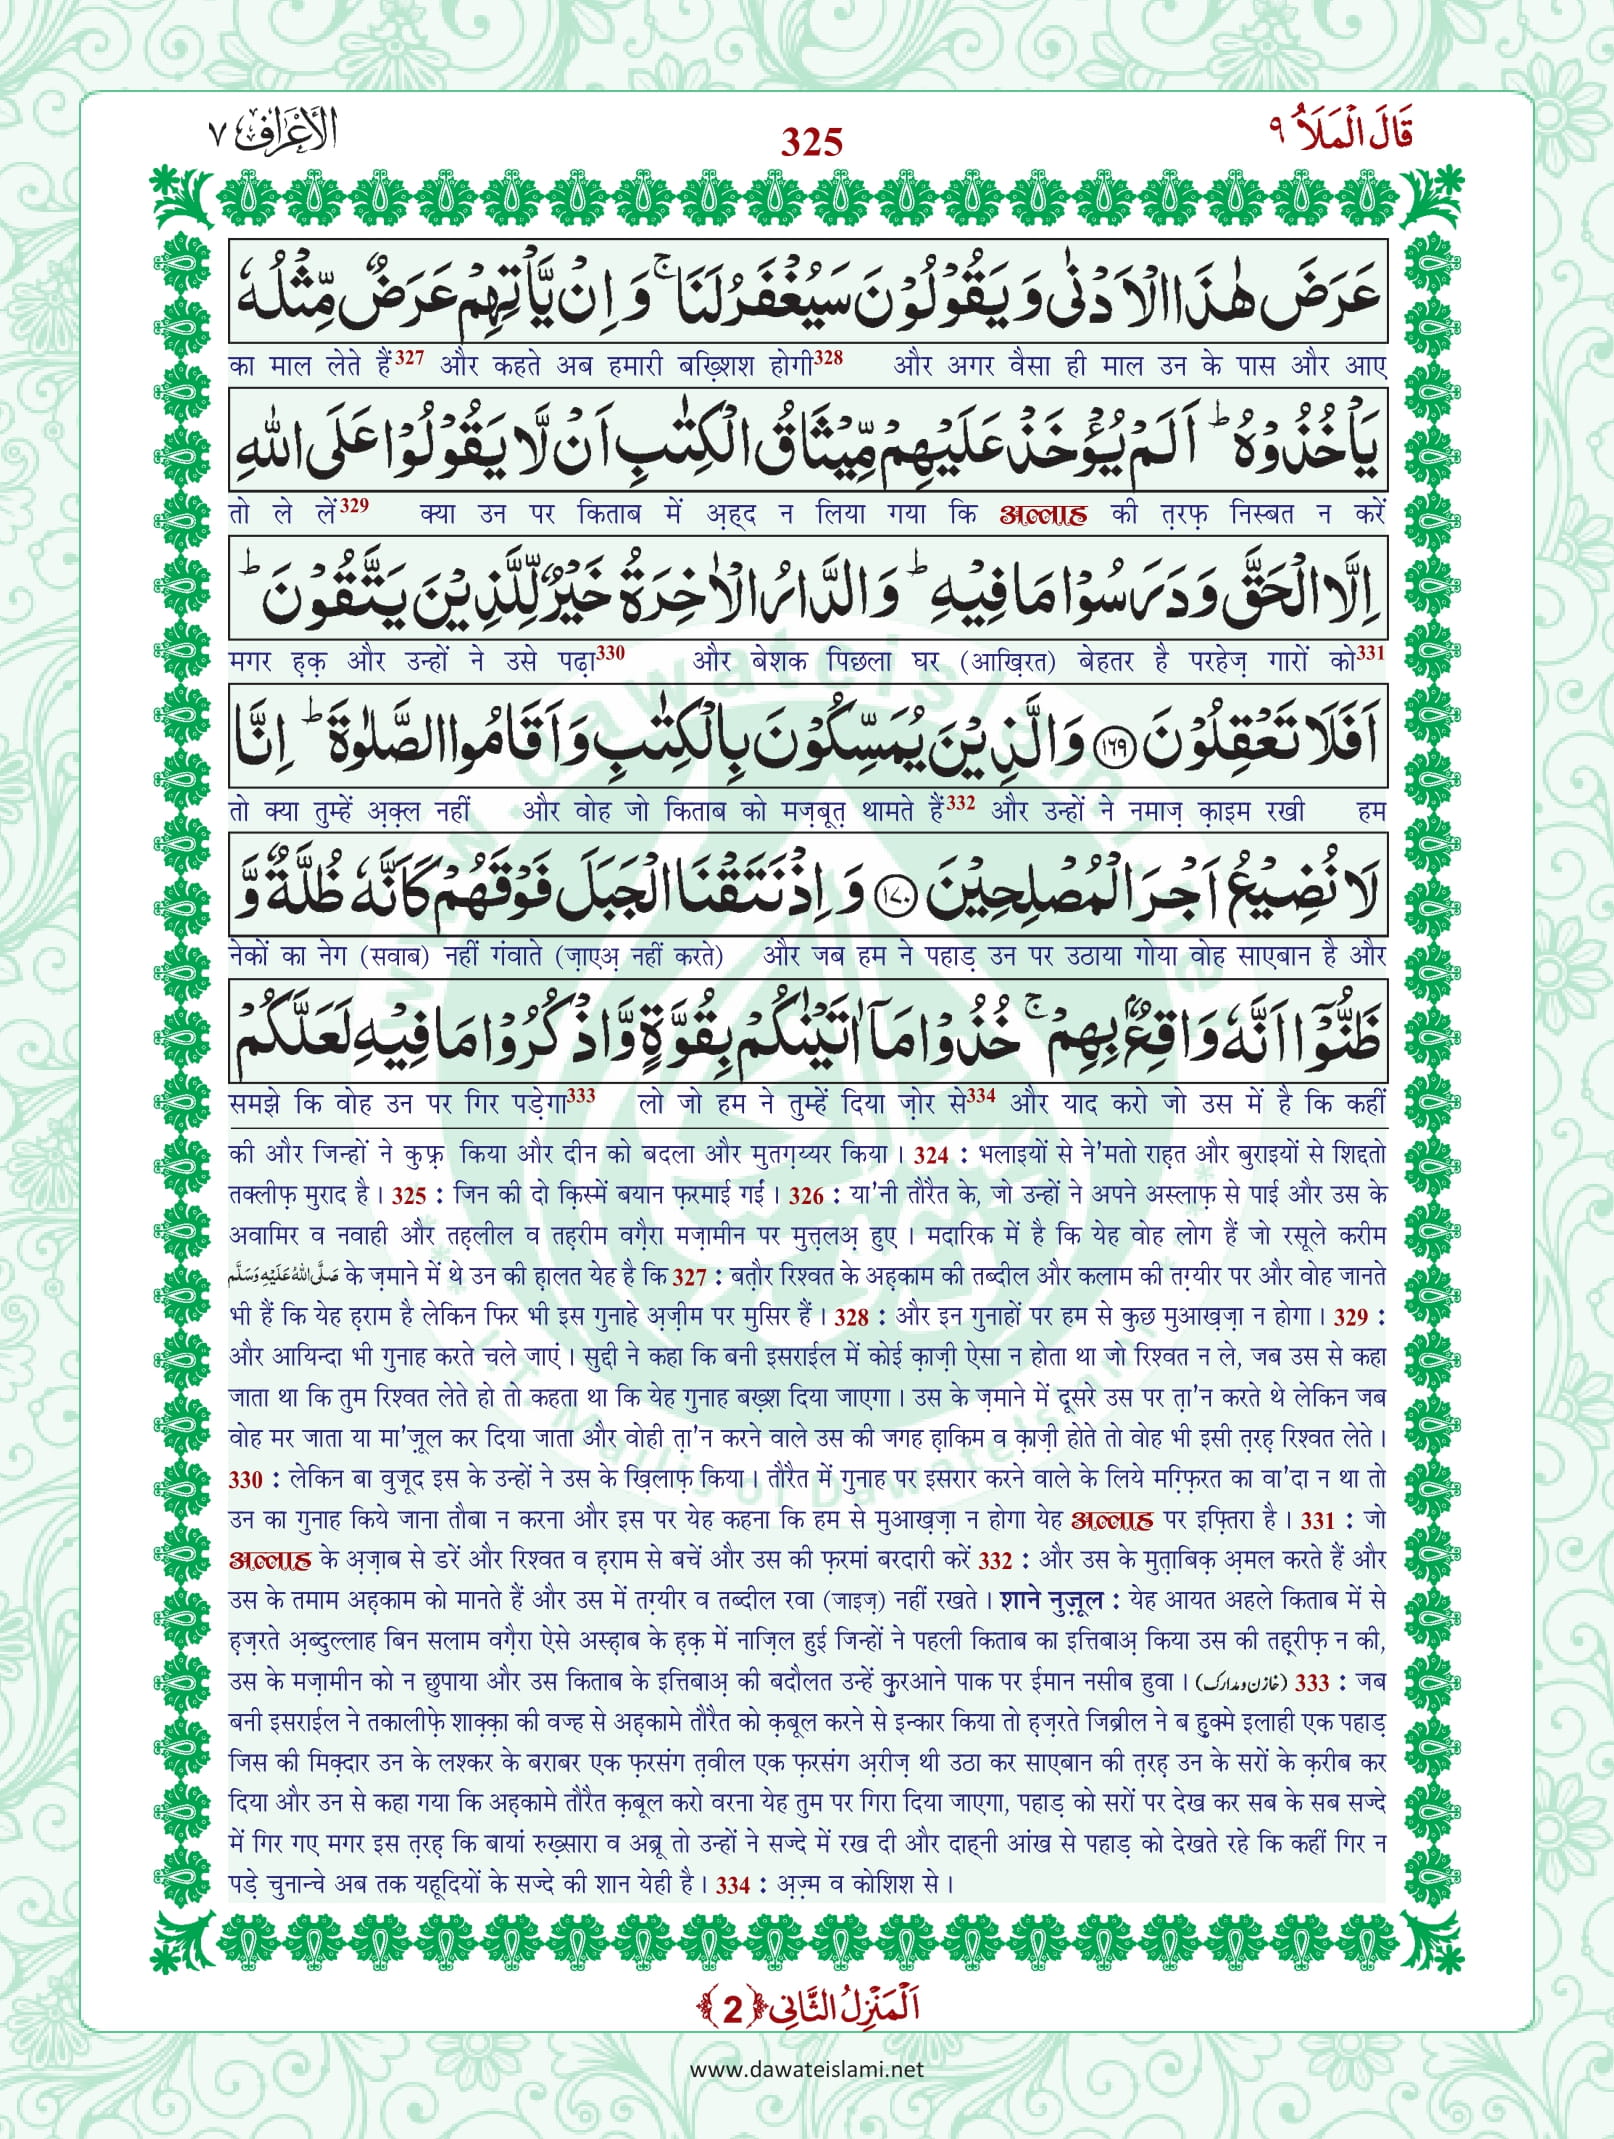 قَالَ الْمَلَاُ ٩
325
الْاَعْرَاف ٧
عَرَضَ هٰذَا الْاَدْنٰى وَ یَقُوْلُوْنَ سَیُغْفَرُ لَنَاۚ وَ اِنْ یَّاْتِهِمْ عَرَضٌ مِّثْلُهٗ
का माल लेते हैं327 और कहते अब हमारी बख़्शिश होगी328 और अगर वैसा ही माल उन के पास और आए
یَاْخُذُوْهُؕ اَلَمْ یُؤْخَذْ عَلَیْهِمْ مِّیْثَاقُ الْكِتٰبِ اَنْ لَّا یَقُوْلُوْا عَلَى اللّٰهِ
तो ले लें329 क्या उन पर किताब में अ़हद न लिया गया कि अल्लाह की त़रफ़ निस्बत न करें
اِلَّا الْحَقَّ وَ دَرَسُوْا مَا فِیْهِؕ وَ الدَّارُ الْاٰخِرَةُ خَیْرٌ لِّلَّذِیْنَ یَتَّقُوْنَؕ
मगर ह़क़ और उन्हों ने उसे पढ़ा330 और बेशक पिछला घर (आख़िरत) बेहतर है परहेज़ गारों को331
اَفَلَا تَعْقِلُوْنَ ﴿۱۶۹﴾ وَ الَّذِیْنَ یُمَسِّكُوْنَ بِالْكِتٰبِ وَ اَقَامُوا الصَّلٰوةَؕ اِنَّا
तो क्या तुम्हें अ़क़्ल नहीं और वोह जो किताब को मज़बूत़ थामते हैं332 और उन्हों ने नमाज़ क़ाइम रखी हम
لَا نُضِیْعُ اَجْرَ الْمُصْلِحِیْنَ ﴿۱۷۰﴾ وَ اِذْ نَتَقْنَا الْجَبَلَ فَوْقَهُمْ كَاَنَّهٗ ظُلَّةٌ وَّ
नेकों का नेग (सवाब) नहीं गंवाते (ज़ाएअ़ नहीं करते) और जब हम ने पहाड़ उन पर उठाया गोया वोह साएबान है और
ظَنُّوْۤا اَنَّهٗ وَاقِعٌۢ بِهِمْۚ خُذُوْا مَاۤ اٰتَیْنٰكُمْ بِقُوَّةٍ وَّ اذْكُرُوْا مَا فِیْهِ لَعَلَّكُمْ
समझे कि वोह उन पर गिर पड़ेगा333 लो जो हम ने तुम्हें दिया ज़ोर से334 और याद करो जो उस में है कि कहीं
की और जिन्हों ने कुफ़्र किया और दीन को बदला और मुतग़य्यर किया। 324 : भलाइयों से ने'मतो राह़त और बुराइयों से शिद्दतो
तक्लीफ़ मुराद है। 325 : जिन की दो क़िस्में बयान फ़रमाई गईं। 326 : या'नी तौरैत के, जो उन्हों ने अपने अस्लाफ़ से पाई और उस के
अवामिर व नवाही और तह़लील व तह़रीम वग़ैरा मज़ामीन पर मुत़्त़लअ़ हुए। मदारिक में है कि येह वोह लोग हैं जो रसूले करीम
صَلَّى اللّٰهُ عَلَيْهِ وَسَلَّم के ज़माने में थे उन की ह़ालत येह है कि 327 : बत़ौर रिश्वत के अह़काम की तब्दील और कलाम की तग़्यीर पर और वोह जानते
भी हैं कि येह ह़राम है लेकिन फिर भी इस गुनाहे अ़ज़ीम पर मुसिर हैं। 328 : और इन गुनाहों पर हम से कुछ मुआख़ज़ा न होगा। 329 :
और आयिन्दा भी गुनाह करते चले जाएं। सुद्दी ने कहा कि बनी इसराईल में कोई क़ाज़ी ऐसा न होता था जो रिश्वत न ले, जब उस से कहा
जाता था कि तुम रिश्वत लेते हो तो कहता था कि येह गुनाह बख़्श दिया जाएगा। उस के ज़माने में दूसरे उस पर त़ा'न करते थे लेकिन जब
वोह मर जाता या मा'ज़ूल कर दिया जाता और वोही त़ा'न करने वाले उस की जगह ह़ाकिम व क़ाज़ी होते तो वोह भी इसी त़रह़ रिश्वत लेते।
330 : लेकिन बा वुजूद इस के उन्हों ने उस के ख़िलाफ़ किया। तौरैत में गुनाह पर इसरार करने वाले के लिये मग़्फ़िरत का वा'दा न था तो
उन का गुनाह किये जाना तौबा न करना और इस पर येह कहना कि हम से मुआख़ज़ा न होगा येह अल्लाह पर इफ़्तिरा है। 331 : जो
अल्लाह के अ़ज़ाब से डरें और रिश्वत व ह़राम से बचें और उस की फ़रमां बरदारी करें 332 : और उस के मुत़ाबिक़ अ़मल करते हैं और
उस के तमाम अह़काम को मानते हैं और उस में तग़्यीर व तब्दील रवा (जाइज़) नहीं रखते। शाने नुज़ूल : येह आयत अहले किताब में से
ह़ज़रते अ़ब्दुल्लाह बिन सलाम वग़ैरा ऐसे अस्ह़ाब के ह़क़ में नाज़िल हुई जिन्हों ने पहली किताब का इत्तिबाअ़ किया उस की तह़रीफ़ न की,
उस के मज़ामीन को न छुपाया और उस किताब के इत्तिबाअ़ की बदौलत उन्हें क़ुरआने पाक पर ईमान नसीब हुवा। (خازن ومدارک) 333 : जब
बनी इसराईल ने तकालीफ़े शाक़्क़ा की वज्ह से अह़कामे तौरैत को क़बूल करने से इन्कार किया तो ह़ज़रते जिब्रील ने ब हु़क्मे इलाही एक पहाड़
जिस की मिक़्दार उन के लश्कर के बराबर एक फ़रसंग त़वील एक फ़रसंग अ़रीज़ थी उठा कर साएबान की त़रह़ उन के सरों के क़रीब कर
दिया और उन से कहा गया कि अह़कामे तौरैत क़बूल करो वरना येह तुम पर गिरा दिया जाएगा, पहाड़ को सरों पर देख कर सब के सब सज्दे
में गिर गए मगर इस त़रह़ कि बायां रुख़्सारा व अब्रू तो उन्हों ने सज्दे में रख दी और दाह्नी आंख से पहाड़ को देखते रहे कि कहीं गिर न
पड़े चुनान्चे अब तक यहूदियों के सज्दे की शान येही है। 334 : अ़ज़्म व कोशिश से।
اَلْمَنْزِلُ الثَّانِی ﴿2﴾
www.dawateislami.net